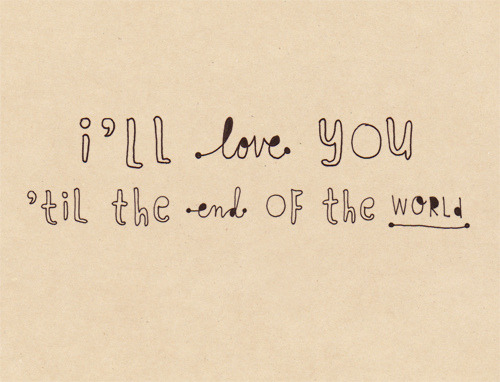 i'll love you
'til the end OF the WORLd